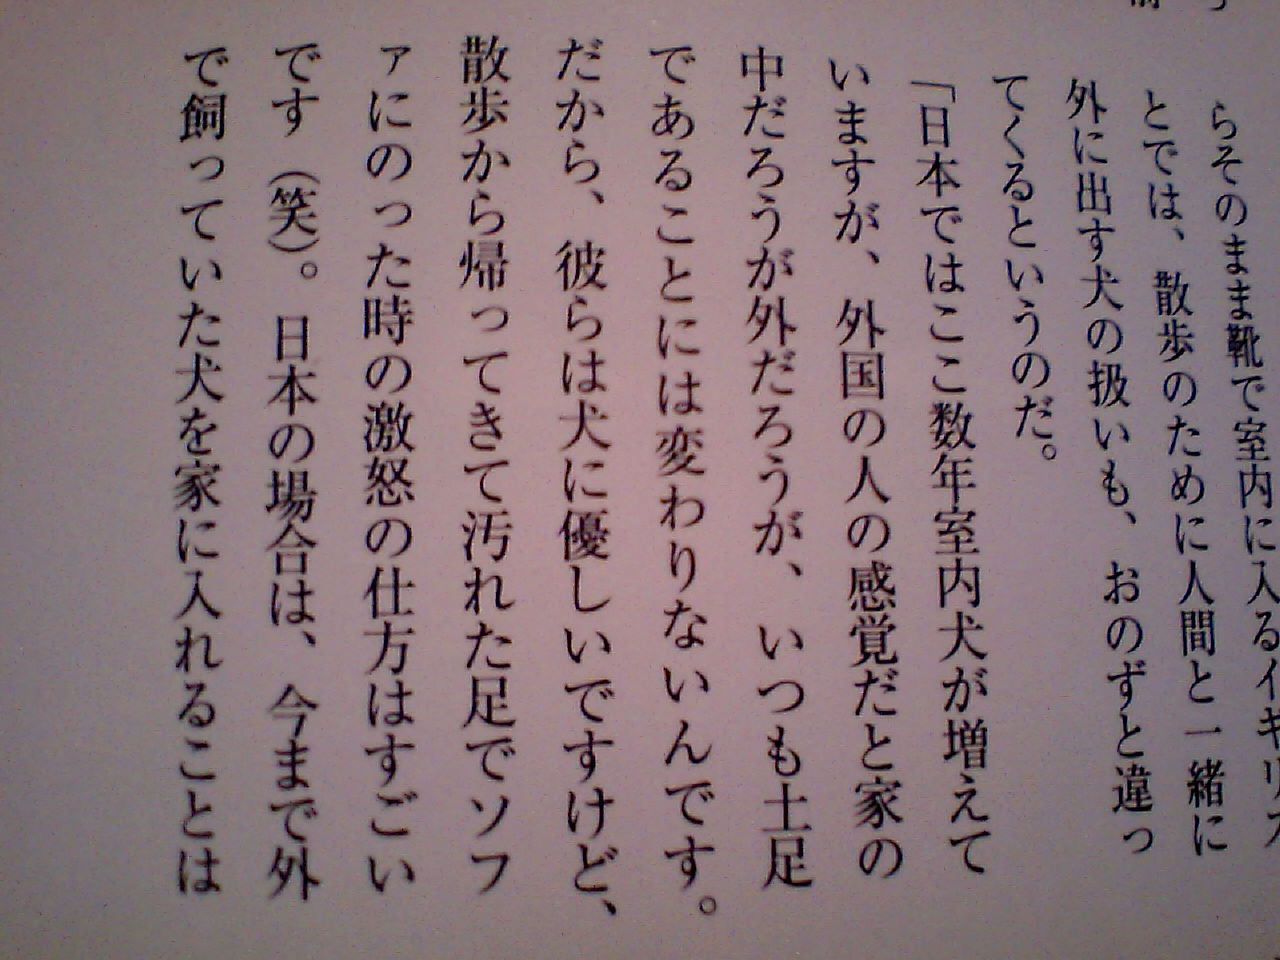 らそのまま靴で室内に入るイギリス
とでは、散歩のために人間と一緒に
外に出す犬の扱いも、おのずと違っ
てくるというのだ。
「日本ではここ数年室内犬が増えて
いますが、外国の人の感覚だと家の
中だろうが外だろうが、いつも土足
であることには変わりないんです。
だから、彼らは犬に優しいですけど、
散歩から帰ってきて汚れた足でソフ
ァにのった時の激怒の仕方はすごい
です（笑）。日本の場合は、今まで外
で飼っていた犬を家に入れることは